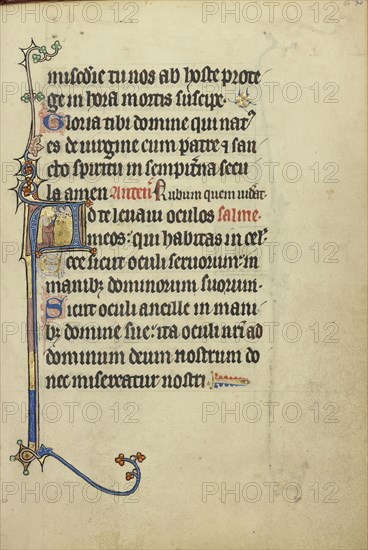 misc̄die tu nos ab hoste prote
ge in hora mortis suscipe.
Gloria tibi domine qui nat᷒
es de uirgine cum patre ⁊ san
cto spiritu in sempit̄na secu
la amen. Anteñ Rubum quem uid̄at
Ad te leuaui oculos salme.
meos: qui habitas in cel᷒
Ecce sicut oculi seruorum: in
manibꝫ dominorum suorum.
Sicut oculi ancille in mani
bꝫ domine sue: ita oculi nr̄i ad
dominum deum nostrum do
nec misereatur nostri
PHOTO 12 PHOTO 12 PHOTO 12